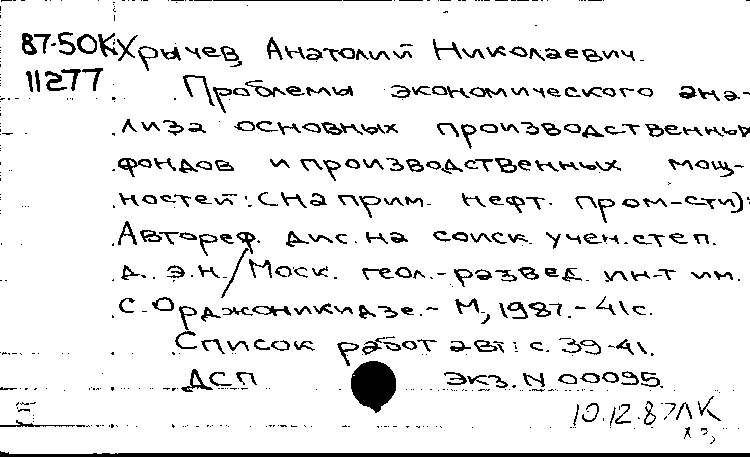 87-50К Хрычев Анатолий Николаевич.
11277 Проблемы экономического ана-
лиза основных производственных
фондов и производственных мощ-
ностей: (На прим. нефт. пром-сти):
Автореф. дис. на соиск. учен. степ.
д. э. н. / Моск. геол.-развед. ин-т им.
С. Орджоникидзе. - М, 1987. - 41с.
Список работ авт: с. 39-41.
ДСП Экз. N 00095.
5 10.12.87ЛК